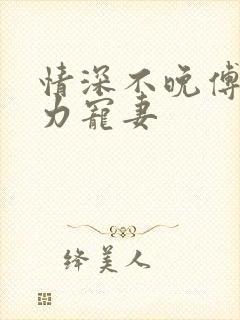 情深不晚傅
力寵妻
绛美人